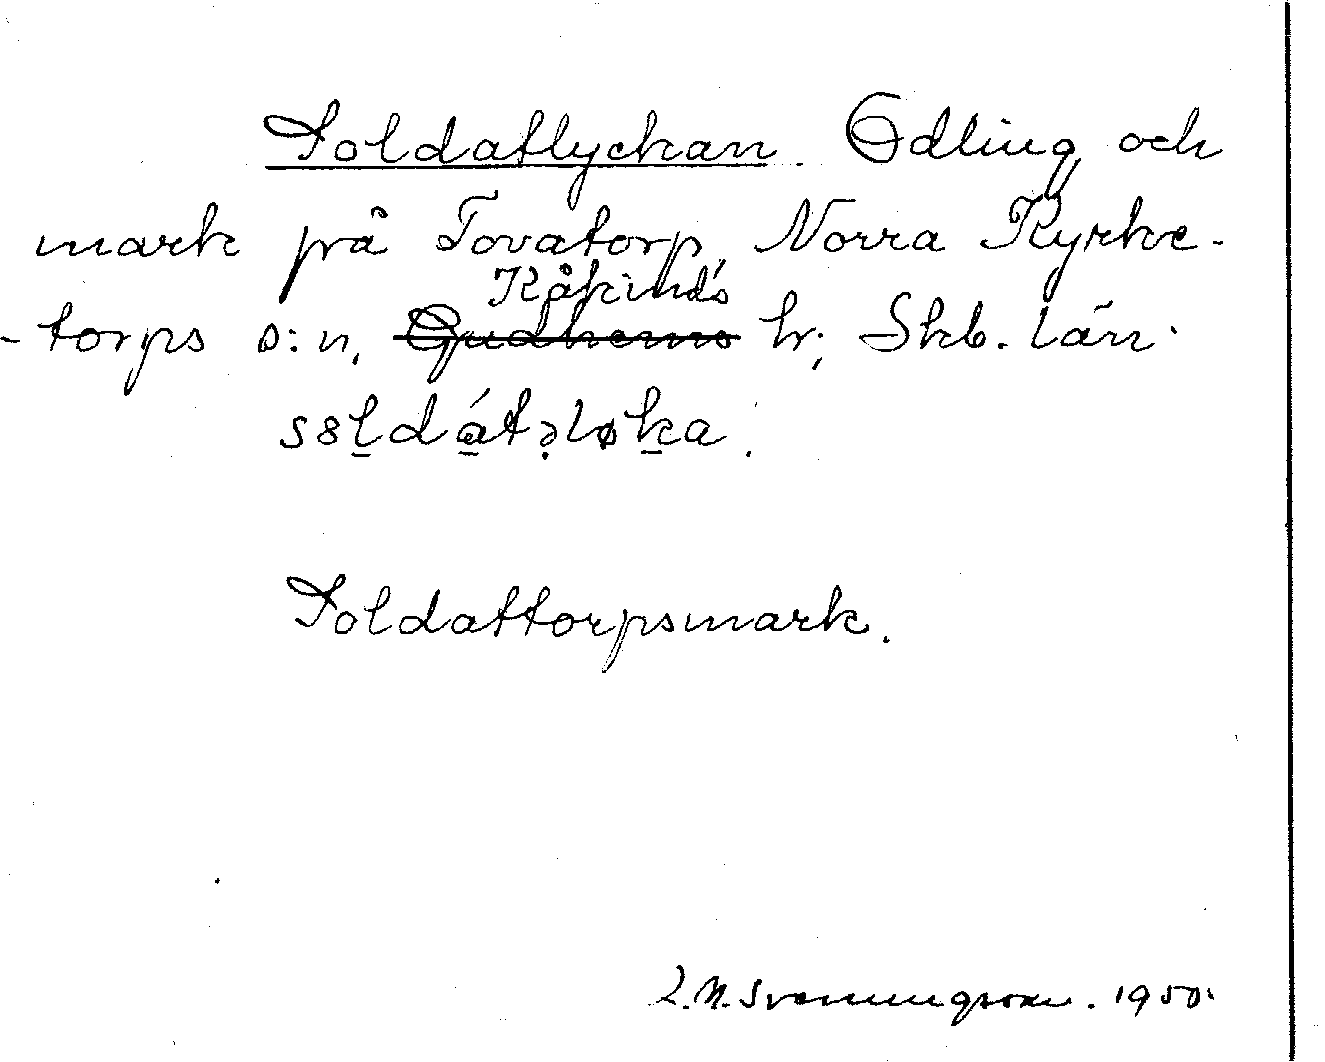 Soldatlyckan. Odling och
mark på Tovatorp, Norra Kyrke-
Kåkinds
-torps s:n, Gudhems hr; Skb. län.
Soldattorpsmark.
Svenningsson. 1950.